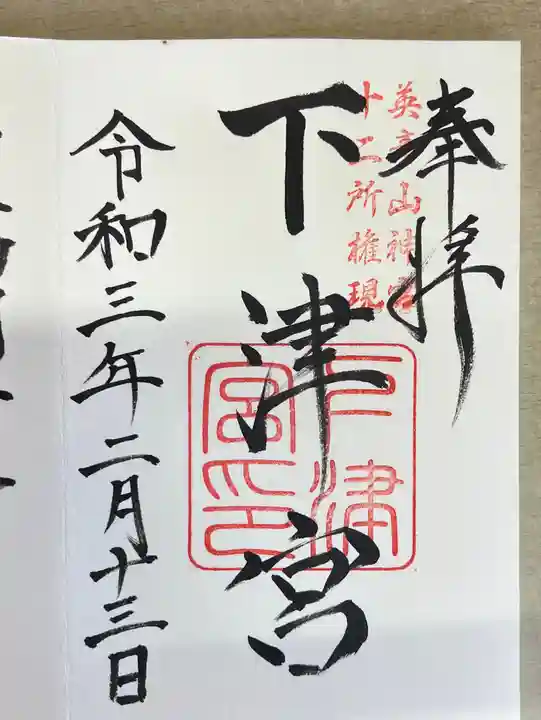 奉拝
英彦山神宮
十二所権現
下津宮
下津
宮印
令和三年二月十三日